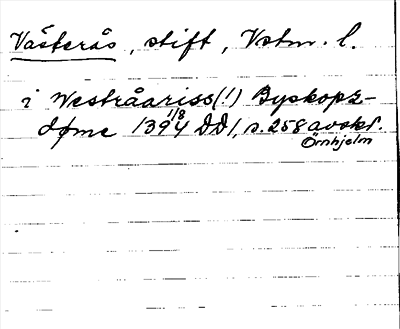 Västerås, stift, Vstm. l.
i Westråariss(!) Byskopz-
døme 1394 11/8 DD1, s. 258 avskr.
Örnhjelm